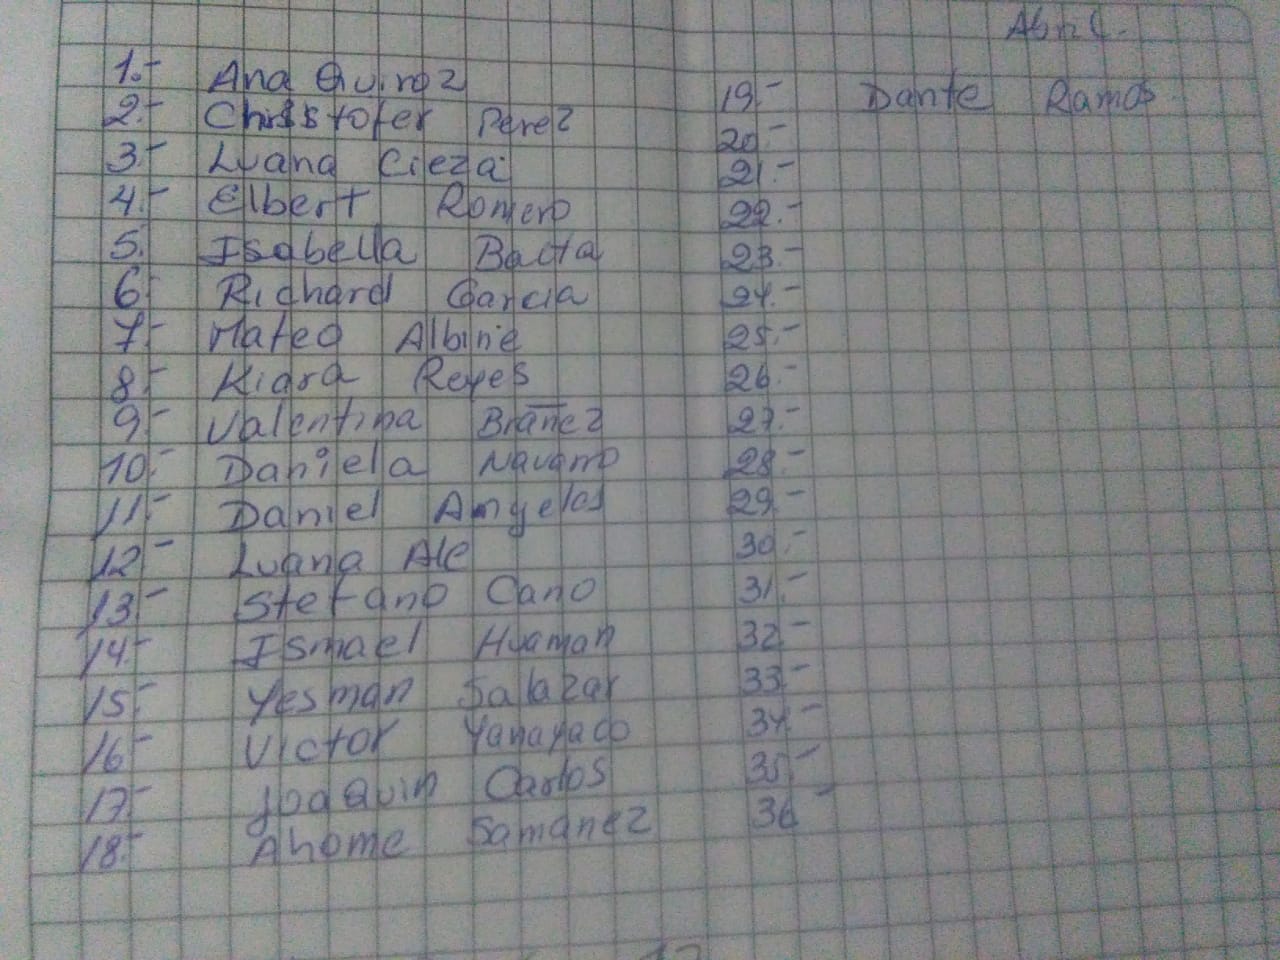 Abril.
1.- Ana Quiroz
2.- Christofer Perez
3.- Luana Cieza
4.- Elbert Romero
5.- Isabella Bacta
6.- Richard Garcia
7.- Mateo Albine
8.- Kiara Reyes
9.- Valentina Brañez
10.- Daniela Navarro
11.- Daniel Angelos
12.- Luana Ale
13.- Stefano Cano
14.- Ismael Huaman
15.- Yesman Salazar
16.- Victor Yanayaco
17.- Joaquin Carlos
18.- Ahome Samanez
19.- Dante Ramos
20.-
21.-
22.-
23.-
24.-
25.-
26.-
27.-
28.-
29.-
30.-
31.-
32.-
33.-
34.-
35.-
36.-